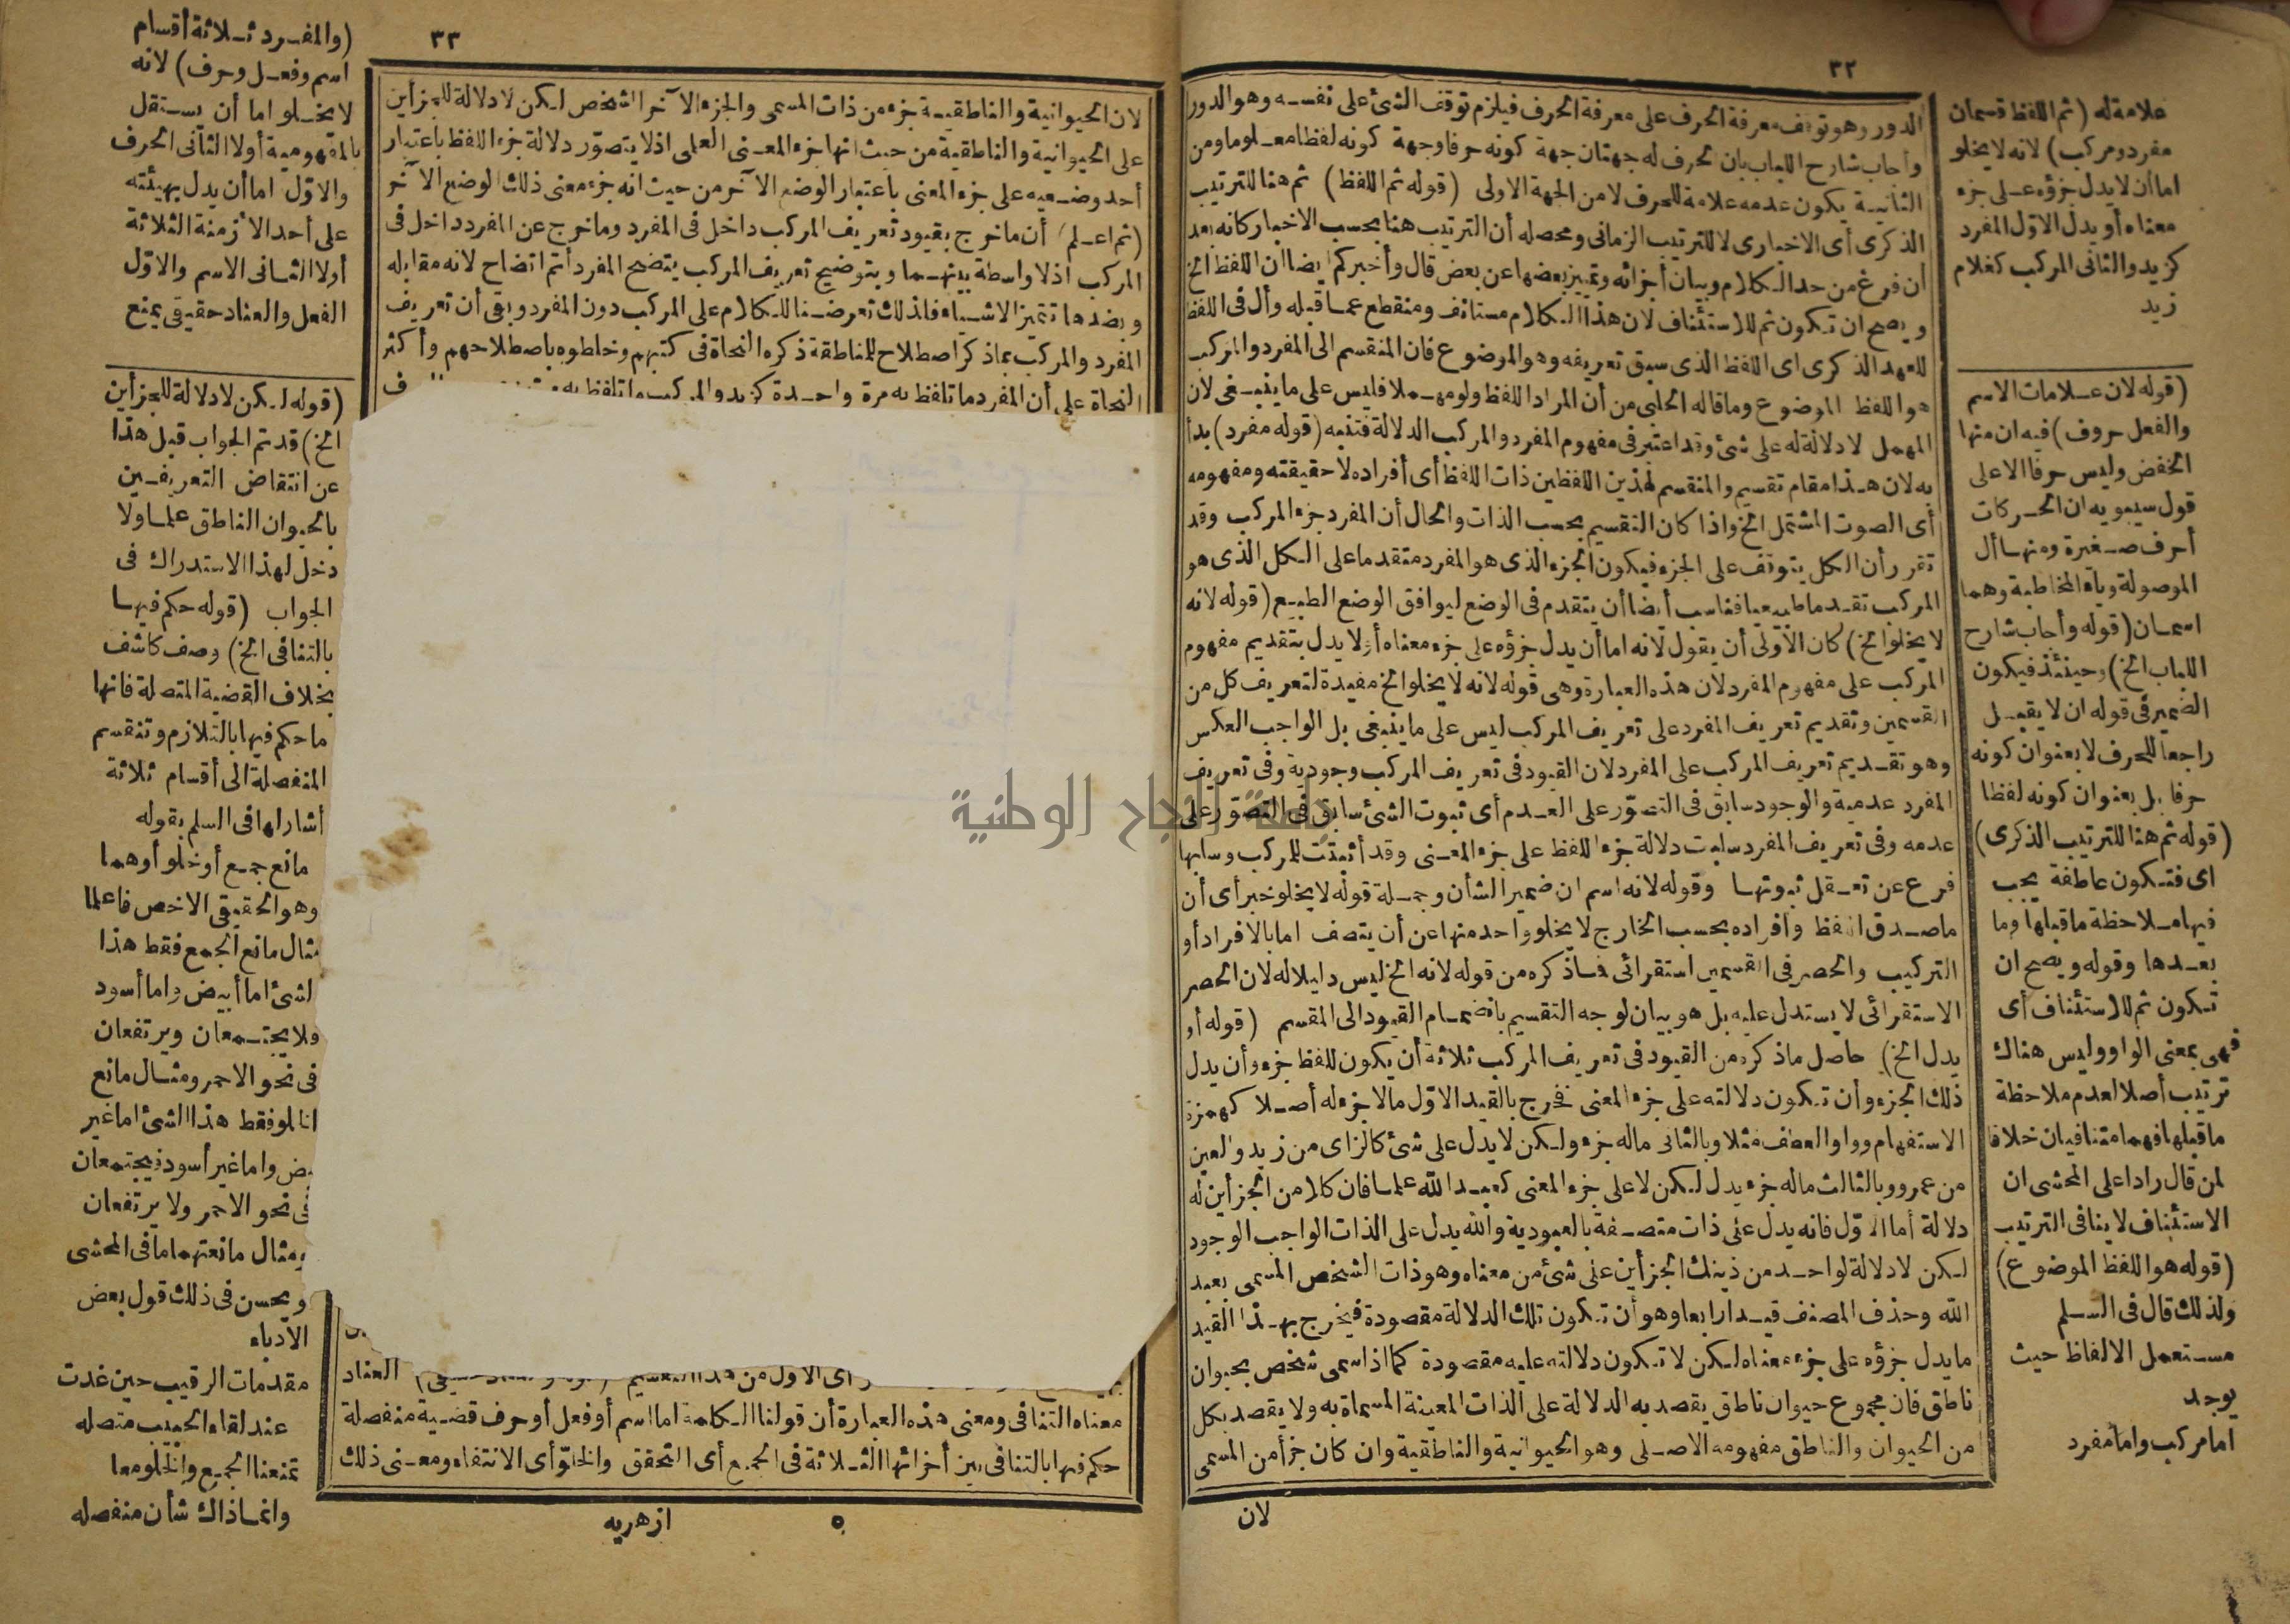 ٣٢
علامة له (ثم اللفظ قسمان
مفرد ومركب) لانه لا يخلو
اما أن لا يدل جزؤه على جزء
معناه أو يدل الاوّل المفرد
كزيد والثانى المركب كغلام
زيد
(قوله لان علامات الاسم
والفعل حروف) فيه ان منها
الخفض وليس حرفا الا على
قول سيبويه ان الحركات
أحرف صغيرة ومنها أل
الموصولة وياء المخاطبة وهما
اسمان (قوله وأجاب شارح
اللباب الخ) وحينئذ فيكون
الضمير فى قوله ان لا يقبل
راجعا للحرف لا بعنوان كونه
حرفا بل بعنوان كونه لفظا
(قوله ثم هنا للترتيب الذكرى)
اى فتكون عاطفة يجب
فيها ملاحظة ما قبلها وما
بعدها وقوله ويصح ان
تكون ثم للاستئناف أى
فهى بمعنى الواو وليس هناك
ترتيب أصلا لعدم ملاحظة
ما قبلها فهما متنافيان خلافا
لمن قال رادا على المحشى ان
الاستئناف لا ينافى الترتيب
(قوله هو اللفظ الموضوع)
ولذلك قال فى السلم
مستعمل الالفاظ حيث
يوجد
اما مركب واما مفرد
الدور وهو توقف معرفة الحرف على معرفة الحرف فيلزم توقف الشئ على نفسه وهو الدور
وأجاب شارح اللباب بان الحرف له جهتان جهة كونه حرفا وجهة كونه لفظا معلوما ومن
الثانية يكون عدمه علامة للحرف لا من الجهة الاولى (قوله ثم اللفظ) ثم هنا للترتيب
الذكرى أى الاخبارى لا للترتيب الزمانى ومحصله أن الترتيب هنا بحسب الاخبار كانه بعد
أن فرغ من حد الكلام وبيان أجزائه وتمييز بعضها عن بعض قال وأخبركم أيضا ان اللفظ الخ
ويصح ان تكون ثم للاستئناف لان هذا الكلام مستانف ومنقطع عما قبله وأل فى اللفظ
للعهد الذكرى اى اللفظ الذى سبق تعريفه وهو الموضوع فان المنقسم الى المفرد والمركب
هو اللفظ الموضوع وما قاله الحلبى من أن المراد اللفظ ولو مهملا فليس على ما ينبغى لان
المهمل لا دلالة له على شئ وقد اعتبر فى مفهوم المفرد والمركب الدلالة فتنبه (قوله مفرد) بدأ
به لان هذا مقام تقسيم والمنقسم لهذين اللفظين ذات اللفظ أى أفراده لا حقيقته ومفهومه
أى الصوت المشتمل الخ واذا كان التقسيم بحسب الذات والحال أن المفرد جزء المركب وقد
تقرر أن الكل يتوقف على الجزء فيكون الجزء الذى هو المفرد متقدما على الكل الذى هو
المركب تقدما طبيعيا فناسب أيضا أن يتقدم فى الوضع ليوافق الوضع الطبيع (قوله لانه
لا يخلو الخ) كان الاولى أن يقول لانه اما أن يدل جزؤه على جزء معناه أو لا يدل بتقديم مفهوم
المركب على مفهوم المفرد لان هذه العبارة وهى قوله لانه لا يخلو الخ مفيدة لتعريف كل من
القسمين وتقديم تعريف المفرد على تعريف المركب ليس على ما ينبغى بل الواجب العكس
وهو تقديم تعريف المركب على المفرد لان القيود فى تعريف المركب وجودية وفى تعريف
المفرد عدمية والوجود سابق فى التصوّر على العدم أى ثبوت الشئ سابق فى التصوّر على
عدمه وفى تعريف المفرد سلبت دلالة جزء اللفظ على جزء المعنى وقد أثبتت للمركب وسلبها
فرع عن تعقل ثبوتها وقوله لانه اسم ان ضمير الشأن وجملة قوله لا يخلو خبر أى أن
ما صدق اللفظ وأفراده بحسب الخارج لا يخلو واحد منها عن أن يتصف اما بالافراد أو
التركيب والحصر فى القسمين استقرائى فما ذكره من قوله لانه الخ ليس دليلا له لان الحصر
الاستقرائى لا يستدل عليه بل هو بيان لوجه التقسيم بانضمام القيود الى المقسم (قوله أو
يدل الخ) حاصل ما ذكره من القيود فى تعريف المركب ثلاثة أن يكون للفظ جزء وأن يدل
ذلك الجزء وأن تكون دلالته على جزء المعنى فخرج بالقيد الاوّل ما لا جزء له أصلا كهمزة
الاستفهام وواو العطف مثلا وبالثانى ماله جزء ولكن لا يدل على شئ كالزاى من زيد والعين
من عمرو وبالثالث ماله جزء يدل لكن لا على جزء المعنى كعبد الله علما فان كلا من الجزأين له
دلالة أما الاوّل فانه يدل على ذات متصفة بالعبودية والله يدل على الذات الواجب الوجود
لكن لا دلالة لواحد من ذينك الجزأين على شئ من معناه وهو ذات الشخص المسمى بعبد
الله وحذف المصنف قيدا رابعا وهو أن تكون تلك الدلالة مقصودة فيخرج بهذا القيد
ما يدل جزؤه على جزء معناه لكن لا تكون دلالته عليه مقصودة كما اذا سمى شخص بحيوان
ناطق فان مجموع حيوان ناطق يقصد به الدلالة على الذات المعينة المسماة به ولا يقصد بكل
من الحيوان والناطق مفهومه الاصلى وهو الحيوانية والناطقية وان كان جزأ من المسمى
لان
٣٣
(والمفرد ثلاثة أقسام
اسم وفعل وحرف) لانه
لا يخلو اما أن يستقل
بالمفهومية أولا الثانى الحرف
والاوّل اما أن يدل بهيئته
على أحد الازمنة الثلاثة
أولا الثانى الاسم والاوّل
الفعل والعناد حقيقى يمنع
(قوله لكن لا دلالة للجزأين
الخ) قد تم الجواب قبل هذا
عن انتقاض التعريفين
بالحيوان الناطق علما ولا
دخل لهذا الاستدراك فى
الجواب (قوله حكم فيها
بالتنافى الخ) وصف كاشف
بخلاف القضية المتصلة فانها
ما حكم فيها بالتلازم وتنقسم
المنفصلة الى أقسام ثلاثة
أشار لها فى السلم بقوله
مانع جمع أو خلو أو هما
وهو الحقيقى الاخص فاعلما
مثال مانع الجمع فقط هذا
الشئ اما أبيض واما أسود
ولا يجتمعان ويرتفعان
فى نحو الاحمر ومثال مانع
الخلو فقط هذا الشئ اما غير
واما غير أسود فيجتمعان
فى نحو الاحمر ولا يرتفعان
ومثال مانعتهما ما فى المحشى
ويحسن فى ذلك قول بعض
الادباء
مقدمات الرقيب حين غدت
عند لقاء الحبيب متصله
تمنعنا الجمع والخلو معا
وانما ذاك شأن منفصله
لان الحيوانية والناطقية جزء من ذات المسمى والجزء الآخر الشخص لكن لا دلالة للجزأين
على الحيوانية والناطقية من حيث انها جزء المعنى العلمى اذ لا يتصوّر دلالة جزء اللفظ باعتبار
أحد وضعيه على جزء المعنى باعتبار الوضع الآخر من حيث انه جزء معنى ذلك الوضع الآخر
(ثم اعلم) أن ما خرج بقيود تعريف المركب داخل فى المفرد وما خرج عن المفرد داخل فى
المركب اذ لا واسطة بينهما وبتوضيح تعريف المركب يتضح المفرد أتم اتضاح لانه مقابله
وبضدها تتميز الاشياء فلذلك تعرضنا للكلام على المركب دون المفرد وبقى أن تعريف
المفرد والمركب بما ذكر اصطلاح للمناطقة ذكره النحاة فى كتبهم وخلطوه باصطلاحهم وأكثر
النحاة على أن المفرد ما تلفظ به مرة واحدة كزيد والمركب ما تلفظ به
أى الاول من هذا التقسيم العناد
معناه التنافى ومعنى هذه العبارة أن قولنا الكلمة اما اسم أو فعل أو حرف قضية منفصلة
حكم فيها بالتنافى بين أجزائها الثلاثة فى الجمع أى التحقق والخلوّ أى الانتفاء ومعنى ذلك
٥ ازهريه
جامعة النجاح الوطنية